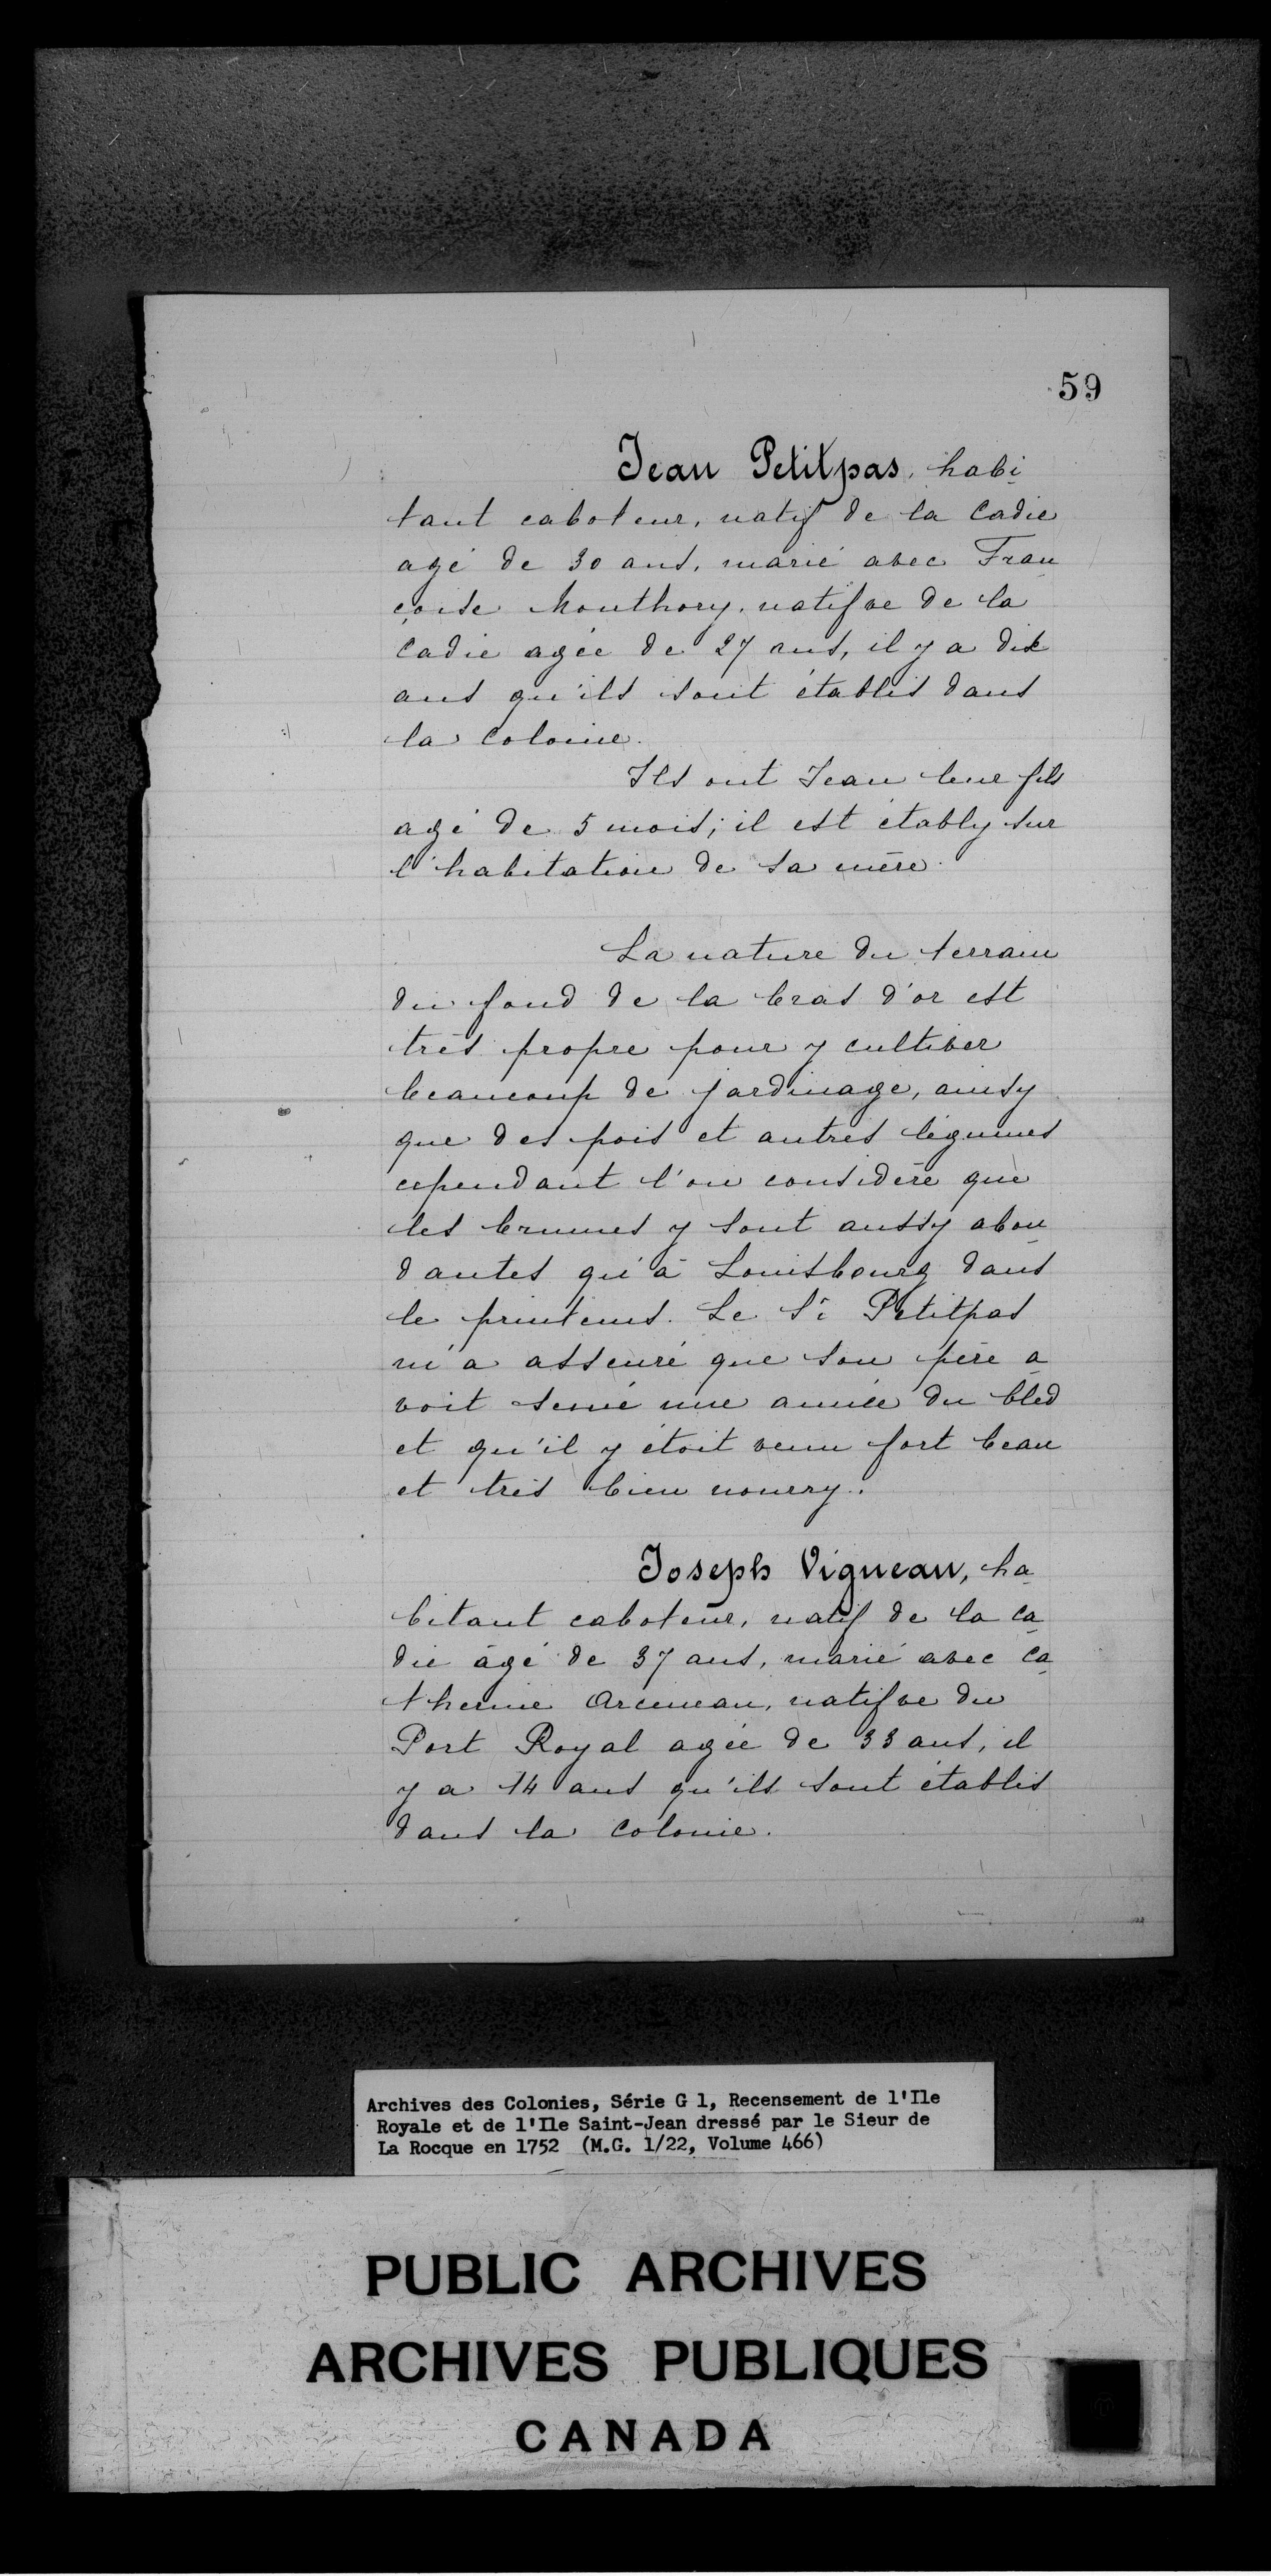 59
Jean Petitpas, habi
tant caboteur, natif de la Cadie
agé de 30 ans, marié avec Fran
çoise Monthory, natifve de la
Cadie agée de 27 ans, il y a dix
ans qu'ils sont établis dans
la Colonie.
Ils ont Jean leur fils
agé de 5 mois; il est étably sur
l'habitation de sa mère.
La nature du terrain
du fond de la bras d'or est
très propre pour y cultiver
beaucoup de jardinage, ainsy
que des pois et autres légumes
cependant l'on considère que
les brumes y sont aussy abon
dantes qu'à Louisbourg dans
le printems. Le Sr Petitpas
m'a asseuré que son père a
voit semé une année du bled
et qu'il y étoit venu fort beau
et très bien nourry.
Joseph Vigneau, ha
bitant caboteur, natif de la Ca
die âgé de 37 ans, marié avec Ca
therine Arceneau, natifve du
Port Royal agée de 33 ans, il
y a 14 ans qu'ils sont établis
dans la Colonie.
Archives des Colonies, Série G 1, Recensement de l'Ile
Royale et de l'Ile Saint-Jean dressé par le Sieur de
La Rocque en 1752 (M.G. 1/22, Volume 466)
PUBLIC ARCHIVES
ARCHIVES PUBLIQUES
CANADA